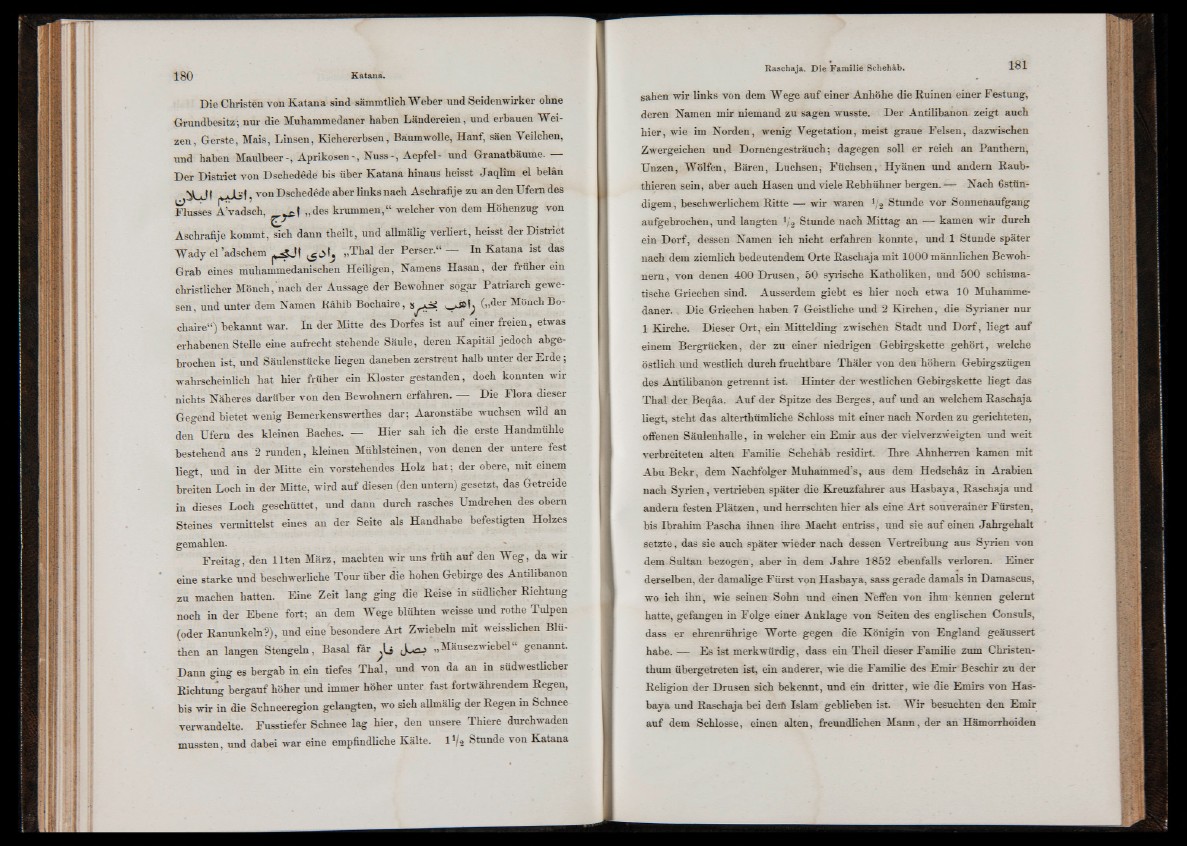 180
Katana.
Die Christen von Katana sind sämmtlich Weber und Seidenwirker ohne
Grundbesitz; nur die Muhammedaner haben Ländereien, und erbauen Wei-
zen, Gerste, Mais, Linsen, Kichererbsen, Baumwolle, Hanf, säen Veilchen,
und haben Maulbeer-, Aprikosen-, Nuss-, Aepfel- und Granatbäume. —
Der District von Dschedêde bis über Katana hinaus heisst Jaqlîm el belân
اقليم البلان, von Dschedêde aber links nach Aschrafije zu an den Ufern des
Flusses A'vadsch, اعوج „des krummen,“ welcher von dem Höhenzug von
Aschrafije kommt, sich dann theilt, und allmälig verliert, heisst der District
Wady el 'adschem وادى العجم „Thal der Perser.“ — In Katana ist das
Grab eines muhammedanischen Heiligen, Namens Hasan, der früher ein
christlicher Mönch, nach der Aussage der Bewohner sogar Patriarch gewe-
sen, und unter dem Namen Râhib Bochaire, راهب بخيره („der Mönch Bo-
chaire“) bekannt war. In der Mitte des Dorfes ist auf einer freien, etwas
erhabenen Stelle eine aufrecht stehende Säule, deren Kapitäl jedoch abge-
brochen ist, und Säulenstücke liegen daneben zerstreut halb unter der Erde;
wahrscheinlich hat hier früher ein Kloster gestanden, doch konnten wir
nichts Näheres darüber von den Bewohnern erfahren. — Die Flora dieser
Gegend bietet wenig Bemerkenswerthes dar; Aaronstäbe wuchsen wild an
den Ufern des kleinen Baches. — Hier sah ich die erste Handmühle
bestehend aus 2 runden, kleinen Mühlsteinen, von denen der untere fest
liegt, und in der Mitte ein vorstehendes Holz hat; der obere, mit einem
breiten Loch in der Mitte, wird auf diesen (den untern) gesetzt, das Getreide
in dieses Loch geschüttet, und dann durch rasches Umdrehen des obern
Steines vermittelst eines an der Seite als Handhabe befestigten Holzes
gemahlen.
Freitag, den 11ten März, machten wir uns früh auf den Weg, da wir
eine starke und beschwerliche Tour über die hohen Gebirge des Antilibanon
zu machen hatten. Eine Zeit lang ging die Reise in südlicher Richtung
noch in der Ebene fort; an dem Wege blühten weisse und rothe Tulpen
(oder Ranunkeln?), und eine besondere Art Zwiebeln mit weisslichen Blü-
then an langen Stengeln, Basal fâr بصل فار „Mäusezwiebel“ genannt.
Dann ging es bergab in ein tiefes Thal, und von da an in südwestlicher
Richtung bergauf höher und immer höher unter fast fortwährendem Regen,
bis wir in die Schneeregion gelangten, wo sich allmälig der Regen in Schnee
verwandelte. Fusstiefer Schnee lag hier, den unsere Thiere durchwaden
mussten, und dabei war eine empfindliche Kälte. 1 1/2 Stunde von Katana
Raschaja. Die Familie Schehâb.
181
sahen wir links von dem Wege auf einer Anhöhe die Ruinen einer Festung,
deren Namen mir niemand zu sagen wusste. Der Antilibanon zeigt auch
hier, wie im Norden, wenig Vegetation, meist graue Felsen, dazwischen
Zwergeichen und Dornengesträuch; dagegen soll er reich an Panthern,
Unzen, Wölfen, Bären, Luchsen, Füchsen, Hyänen und andern Raub-
thieren sein, aber auch Hasen und viele Rebhühner bergen. — Nach 6stün-
digem, beschwerlichem Ritte — wir waren 1/2 Stunde vor Sonnenaufgang
aufgebrochen, und langten 1/2 Stunde nach Mittag an — kamen wir durch
ein Dorf, dessen Namen ich nicht erfahren konnte, und 1 Stunde später
nach dem ziemlich bedeutendem Orte Raschaja mit 1000 männlichen Bewoh-
nern, von denen 400 Drusen, 50 syrische Katholiken, und 500 schisma-
tische Griechen sind. Ausserdem giebt es hier noch etwa 10 Muhamme-
daner. Die Griechen haben 7 Geistliche und 2 Kirchen, die Syrianer nur
1 Kirche. Dieser Ort, ein Mittelding zwischen Stadt und Dorf, liegt auf
einem Bergrücken, der zu einer niedrigen Gebirgskette gehört, welche
östlich und westlich durch fruchtbare Thäler von den höhern Gebirgszügen
des Antilibanon getrennt ist. Hinter der westlichen Gebirgskette liegt das
Thal der Beqâa. Auf der Spitze des Berges, auf und an welchem Raschaja
liegt, steht das alterthümliche Schloss mit einer nach Norden zu gerichteten,
offenen Säulenhalle, in welcher ein Emir aus der vielverzweigten und weit
verbreiteten alten Familie Schehâb residirt. Ihre Ahnherren kamen mit
Abu Bekr, dem Nachfolger Muhammed's, aus dem Hedschâz in Arabien
nach Syrien, vertrieben später die Kreuzfahrer aus Hasbaya, Raschaja und
andern festen Plätzen, und herrschten hier als eine Art souverainer Fürsten,
bis Ibrahim Pascha ihnen ihre Macht entriss, und sie auf einen Jahrgehalt
setzte, das sie auch später wieder nach dessen Vertreibung aus Syrien von
dem Sultan bezogen, aber in dem Jahre 1852 ebenfalls verloren. Einer
derselben, der damalige Fürst von Hasbaya, sass gerade damals in Damascus,
wo ich ihn, wie seinen Sohn und einen Neffen von ihm kennen gelernt
hatte, gefangen in Folge einer Anklage von Seiten des englischen Consuls,
dass er ehrenrührige Worte gegen die Königin von England geäussert
habe. — Es ist merkwürdig, dass ein Theil dieser Familie zum Christen-
thum übergetreten ist, ein anderer, wie die Familie des Emir Beschir zu der
Religion der Drusen sich bekennt, und ein dritter, wie die Emirs von Has-
baya und Raschaja bei dem Islam geblieben ist. Wir besuchten den Emir
auf dem Schlosse, einen alten, freundlichen Mann, der an Hämorrhoiden